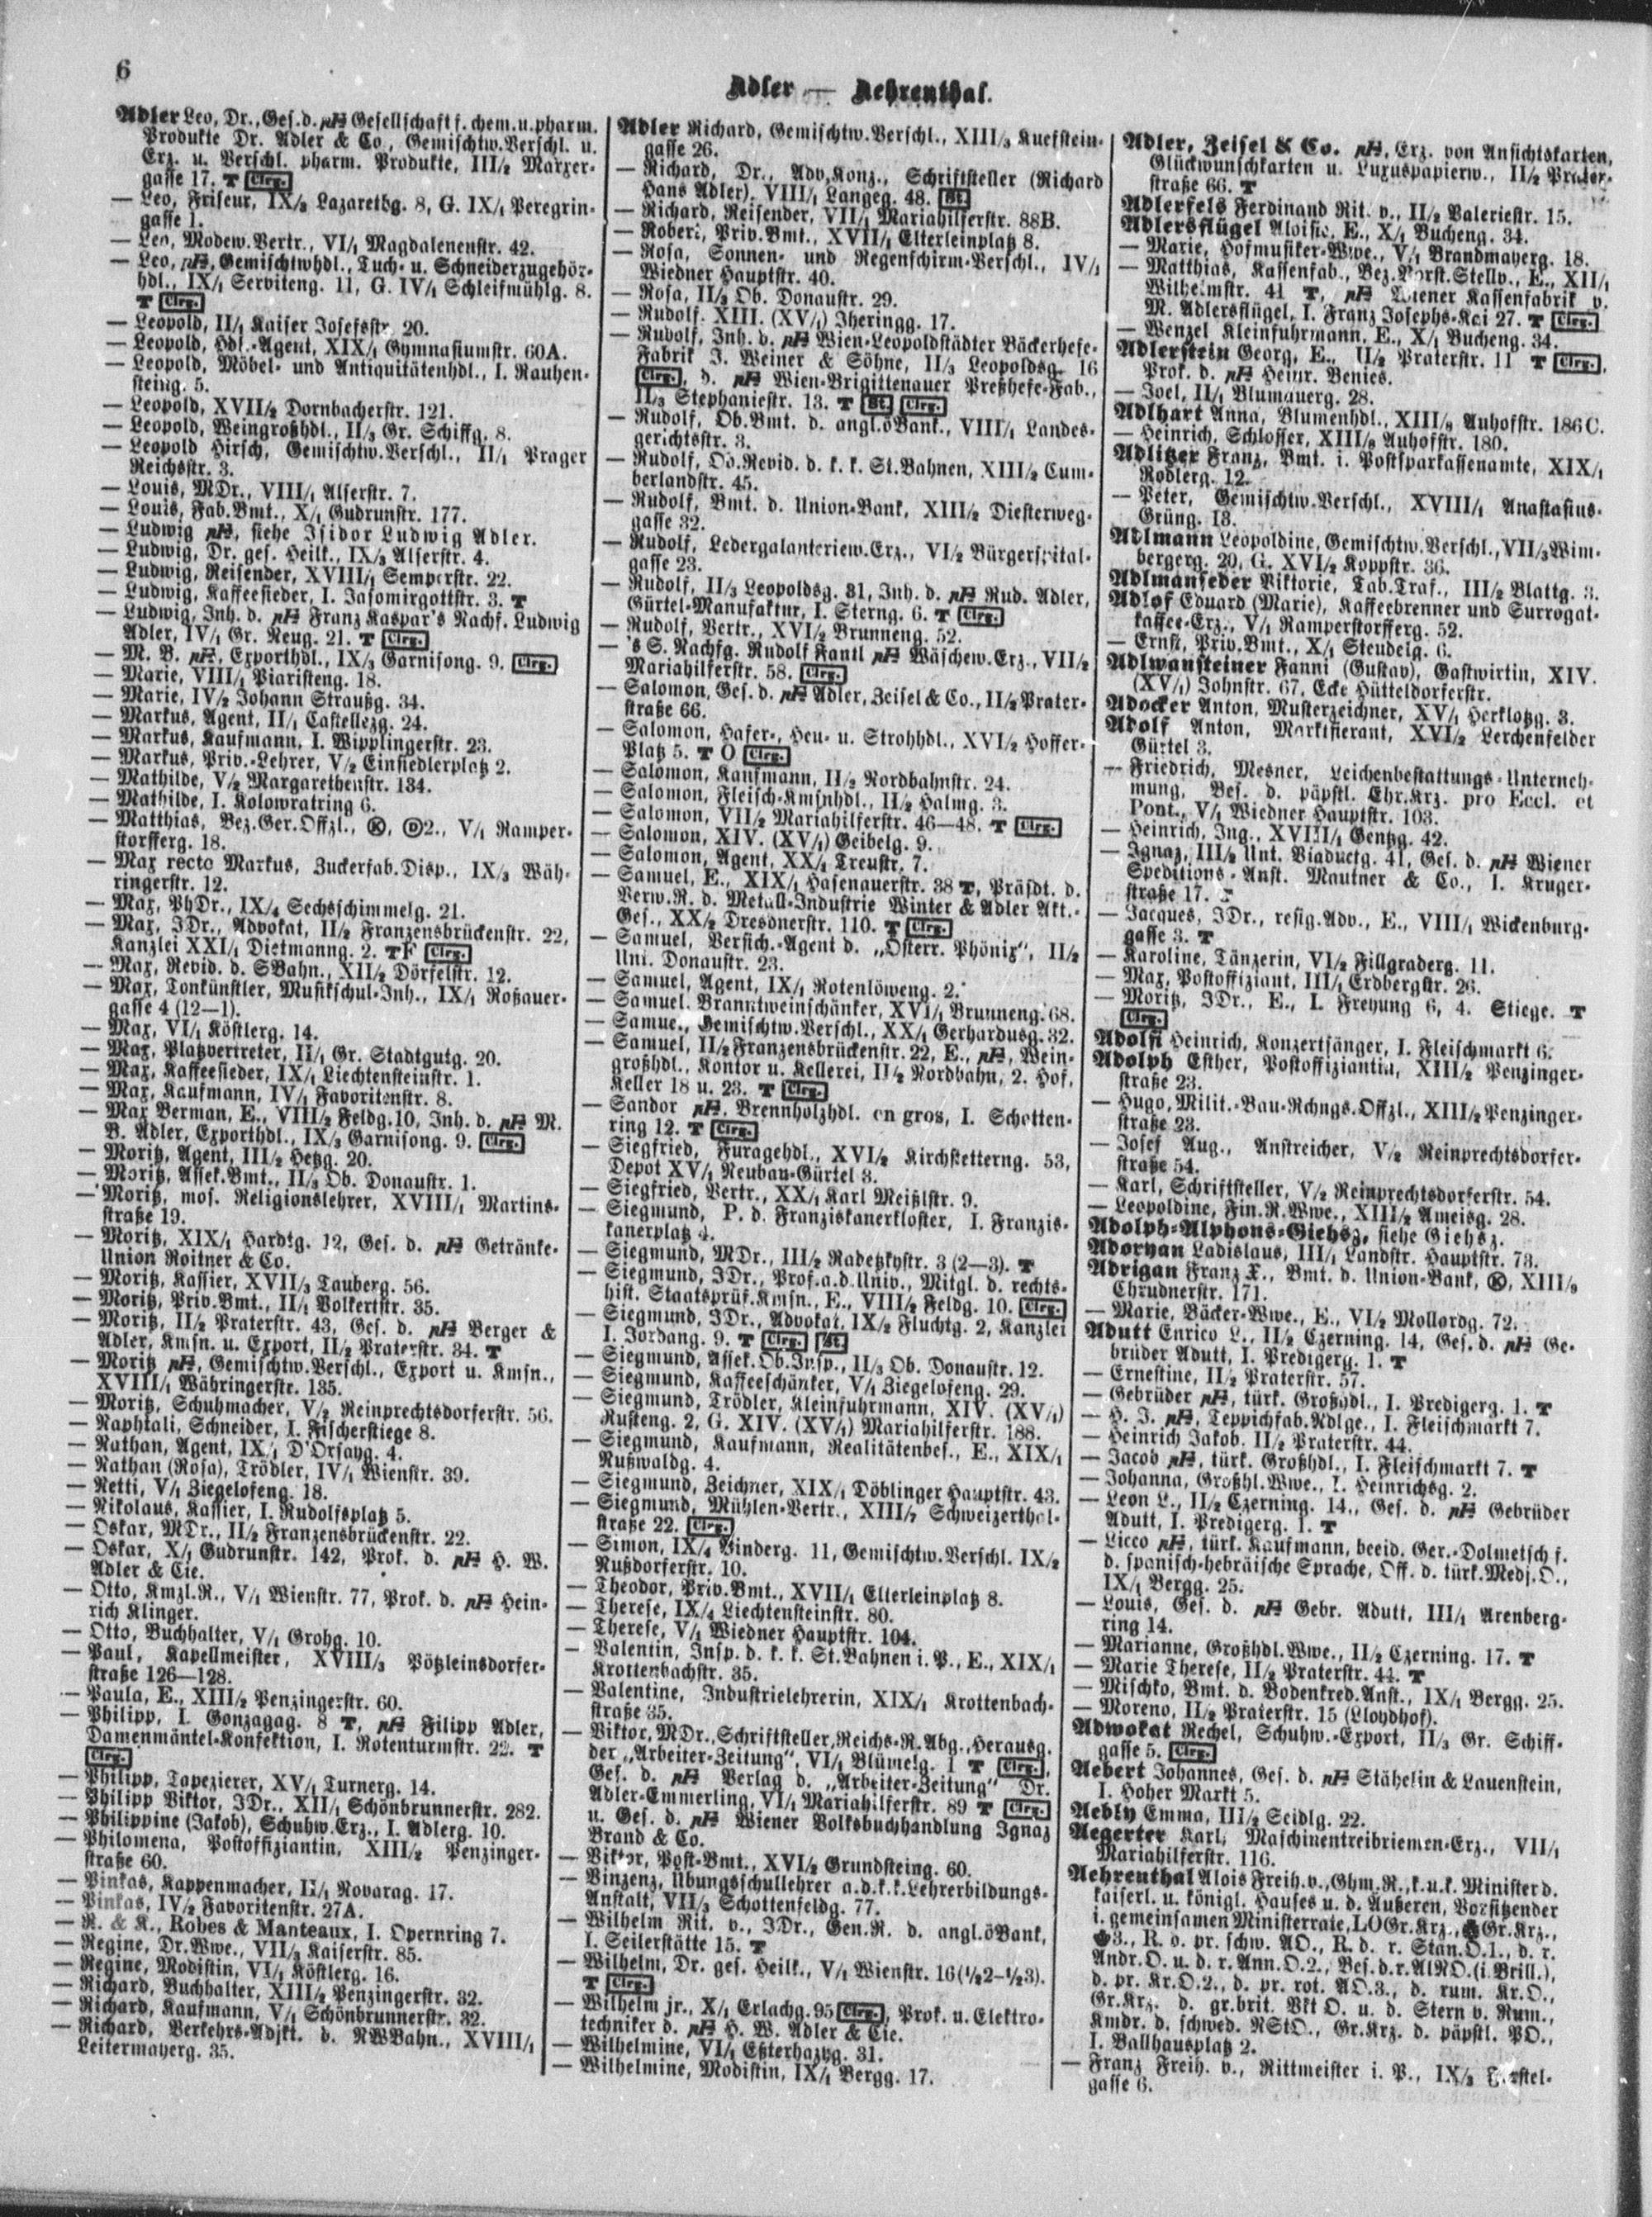 6
Adler — Aehrenthal.
Adler Leo, Dr., Ges. d. pH Gesellschaft f. chem. u. pharm.
Produkte Dr. Adler & Co., Gemischtw.Verschl. u.
Erz. u. Verschl. pharm. Produkte, III/2 Marxer-
gasse 17. T Clrg.
— Leo, Friseur, IX/3 Lazarethg. 8, G. IX/1 Peregrin-
gasse 1.
— Leo, Modew.Vertr., VI/1 Magdalenenstr. 42.
— Leo, pH, Gemischtwhdl., Tuch- u. Schneiderzugehör-
hdl., IX/1 Serviteng. 11, G. IV/1 Schleifmühlg. 8.
T Clrg.
— Leopold, II/1 Kaiser Josefsstr. 20.
— Leopold, Hdl.-Agent, XIX/1 Gymnasiumstr. 60A.
— Leopold, Möbel- und Antiquitätenhdl., I. Rauhen-
steing. 5.
— Leopold, XVII/2 Dornbacherstr. 121.
— Leopold, Weingroßhdl., II/3 Gr. Schiffg. 8.
— Leopold Hirsch, Gemischtw.Verschl., II/1 Prager
Reichsstr. 3.
— Louis, MDr., VIII/1 Alserstr. 7.
— Louis, Fab.Bmt., X/1 Gudrunstr. 177.
— Ludwig pH, siehe Isidor Ludwig Adler.
— Ludwig, Dr. ges. Heilk., IX/3 Alserstr. 4.
— Ludwig, Reisender, XVIII/1 Semperstr. 22.
— Ludwig, Kaffeesieder, I. Jasomirgottstr. 3. T
— Ludwig, Inh. d. pH Franz Kaspar's Nachf. Ludwig
Adler, IV/1 Gr. Neug. 21. T Clrg.
— M. B. pH, Exporthdl., IX/3 Garnisong. 9. Clrg.
— Marie, VIII/1 Piaristeng. 18.
— Marie, IV/2 Johann Straußg. 34.
— Markus, Agent, II/1 Castellezg. 24.
— Markus, Kaufmann, I. Wipplingerstr. 23.
— Markus, Priv.-Lehrer, V/2 Einsiedlerplatz 2.
— Mathilde, V/2 Margarethenstr. 134.
— Mathilde, I. Kolowratring 6.
— Matthias, Bez.Ger.Offzl., Ⓚ, Ⓓ2., V/1 Ramper-
storfferg. 18.
— Max recto Markus, Zuckerfab.Disp., IX/3 Wäh-
ringerstr. 12.
— Max, PhDr., IX/4 Sechsschimmelg. 21.
— Max, JDr., Advokat, II/2 Franzensbrückenstr. 22,
Kanzlei XXI/1 Dietmanng. 2. T F Clrg.
— Max, Revid. d. SBahn., XII/2 Dörfelstr. 12.
— Max, Tonkünstler, Musikschul-Inh., IX/1 Roßauer-
gasse 4 (12—1).
— Max, VI/1 Köstlerg. 14.
— Max, Platzvertreter, II/1 Gr. Stadtgutg. 20.
— Max, Kaffeesieder, IX/1 Liechtensteinstr. 1.
— Max, Kaufmann, IV/1 Favoritenstr. 8.
— Max Berman, E., VIII/2 Feldg. 10, Inh. d. pH M.
B. Adler, Exporthdl., IX/3 Garnisong. 9. Clrg.
— Moritz, Agent, III/2 Hetzg. 20.
— Moritz, Assek.Bmt., II/3 Ob. Donaustr. 1.
— Moritz, mos. Religionslehrer, XVIII/1 Martins-
straße 19.
— Moritz, XIX/1 Hardtg. 12, Ges. d. pH Getränke-
Union Roitner & Co.
— Moritz, Kassier, XVII/3 Tauberg. 56.
— Moritz, Priv.Bmt., II/1 Volkertstr. 35.
— Moritz, II/2 Praterstr. 43, Ges. d. pH Berger &
Adler, Kmsn. u. Export, II/2 Praterstr. 34. T
— Moritz pH, Gemischtw.Verschl., Export u. Kmsn.,
XVIII/1 Währingerstr. 135.
— Moritz, Schuhmacher, V/2 Reinprechtsdorferstr. 56.
— Naphtali, Schneider, I. Fischerstiege 8.
— Nathan, Agent, IX/1 D'Orsayg. 4.
— Nathan (Rosa), Trödler, IV/1 Wienstr. 39.
— Netti, V/1 Ziegelofeng. 18.
— Nikolaus, Kassier, I. Rudolfsplatz 5.
— Oskar, MDr., II/2 Franzensbrückenstr. 22.
— Oskar, X/1 Gudrunstr. 142, Prok. d. pH H. W.
Adler & Cie.
— Otto, Kmzl.R., V/1 Wienstr. 77, Prok. d. pH Hein-
rich Klinger.
— Otto, Buchhalter, V/1 Grohg. 10.
— Paul, Kapellmeister, XVIII/3 Pötzleinsdorfer-
straße 126—128.
— Paula, E., XIII/2 Penzingerstr. 60.
— Philipp, I. Gonzagag. 8 T, pH Filipp Adler,
Damenmäntel-Konfektion, I. Rotenturmstr. 22. T
Clrg.
— Philipp, Tapezierer, XV/1 Turnerg. 14.
— Philipp Viktor, JDr., XII/1 Schönbrunnerstr. 282.
— Philippine (Jakob), Schuhw.Erz., I. Adlerg. 10.
— Philomena, Postoffiziantin, XIII/2 Penzinger-
straße 60.
— Pinkas, Kappenmacher, II/1 Novarag. 17.
— Pinkas, IV/2 Favoritenstr. 27A.
— R. & K., Robes & Manteaux, I. Opernring 7.
— Regine, Dr.Wwe., VII/3 Kaiserstr. 85.
— Regine, Modistin, VI/1 Köstlerg. 16.
— Richard, Buchhalter, XIII/2 Penzingerstr. 32.
— Richard, Kaufmann, V/1 Schönbrunnerstr. 32.
— Richard, Verkehrs-Adjkt. d. NWBahn., XVIII/1
Leitermayerg. 35.
Adler Richard, Gemischtw.Verschl., XIII/3 Kuefstein-
gasse 26.
— Richard, Dr., Adv.Konz., Schriftsteller (Richard
Hans Adler), VIII/1 Langeg. 48. St.
— Richard, Reisender, VII/1 Mariahilferstr. 88B.
— Robert, Priv.Bmt., XVII/1 Elterleinplatz 8.
— Rosa, Sonnen- und Regenschirm-Verschl., IV/1
Wiedner Hauptstr. 40.
— Rosa, II/3 Ob. Donaustr. 29.
— Rudolf, XIII. (XV/1) Iheringg. 17.
— Rudolf, Inh. d. pH Wien-Leopoldstädter Bäckerhefe-
Fabrik J. Weiner & Söhne, II/3 Leopoldsg. 16
Clrg., d. pH Wien-Brigittenauer Preßhefe-Fab.,
II/3 Stephaniestr. 13. T St. Clrg.
— Rudolf, Ob.Bmt. d. angl.öBank., VIII/1 Landes-
gerichtsstr. 3.
— Rudolf, Ob.Revid. d. k. k. St.Bahnen, XIII/2 Cum-
berlandstr. 45.
— Rudolf, Bmt. d. Union-Bank, XIII/2 Diesterweg-
gasse 32.
— Rudolf, Ledergalanteriew.Erz., VI/2 Bürgerspital-
gasse 23.
— Rudolf, II/3 Leopoldsg. 31, Inh. d. pH Rud. Adler,
Gürtel-Manufaktur, I. Sterng. 6. T Clrg.
— Rudolf, Vertr., XVI/2 Brunneng. 52.
— 's S. Nachfg. Rudolf Fantl pH Wäschew.Erz., VII/2
Mariahilferstr. 58. Clrg.
— Salomon, Ges. d. pH Adler, Zeisel & Co., II/2 Prater-
straße 66.
— Salomon, Hafer-, Heu- u. Strohhdl., XVI/2 Hoffer-
Platz 5. T O Clrg.
— Salomon, Kaufmann, II/2 Nordbahnstr. 24.
— Salomon, Fleisch-Kmsnhdl., II/2 Halmg. 3.
— Salomon, VII/2 Mariahilferstr. 46—48. T Clrg.
— Salomon, XIV. (XV/1) Geibelg. 9.
— Salomon, Agent, XX/1 Treustr. 7.
— Samuel, E., XIX/1 Hasenauerstr. 38 T, Präsdt. d.
Verw.R. d. Metall-Industrie Winter & Adler Akt.-
Ges., XX/2 Dresdnerstr. 110. T Clrg.
— Samuel, Versich.-Agent d. „Österr. Phönix“, II/2
Unt. Donaustr. 23.
— Samuel, Agent, IX/1 Rotenlöweng. 2.
— Samuel, Branntweinschänker, XVI/1 Brunneng. 68.
— Samuel, Gemischtw.Verschl., XX/1 Gerhardusg. 32.
— Samuel, II/2 Franzensbrückenstr. 22, E., pH, Wein-
großhdl., Kontor u. Kellerei, II/2 Nordbahn, 2. Hof,
Keller 18 u. 23. T Clrg.
— Sandor pH, Brennholzhdl. en gros, I. Schotten-
ring 12. T Clrg.
— Siegfried, Furagehdl., XVI/2 Kirchstetterng. 53,
Depot XV/1 Neubau-Gürtel 3.
— Siegfried, Vertr., XX/1 Karl Meißlstr. 9.
— Siegmund, P. d. Franziskanerkloster, I. Franzis-
kanerplatz 4.
— Siegmund, MDr., III/2 Radetzkystr. 3 (2—3). T
— Siegmund, JDr., Prof. a. d. Univ., Mitgl. d. rechts-
hist. Staatsprüf.Kmsn., E., VIII/2 Feldg. 10. Clrg.
— Siegmund, JDr., Advokat, IX/2 Fluchtg. 2, Kanzlei
I. Jordang. 9. T Clrg. St.
— Siegmund, Assek.Ob.Insp., II/3 Ob. Donaustr. 12.
— Siegmund, Kaffeeschänker, V/1 Ziegelofeng. 29.
— Siegmund, Trödler, Kleinfuhrmann, XIV. (XV/1)
Rusteng. 2, G. XIV. (XV/1) Mariahilferstr. 188.
— Siegmund, Kaufmann, Realitätenbes., E., XIX/1
Nußwaldg. 4.
— Siegmund, Zeichner, XIX/1 Döblinger Hauptstr. 43.
— Siegmund, Mühlen-Vertr., XIII/7 Schweizerthal-
straße 22. Clrg.
— Simon, IX/4 Binderg. 11, Gemischtw.Verschl. IX/2
Nußdorferstr. 10.
— Theodor, Priv.Bmt., XVII/1 Elterleinplatz 8.
— Therese, IX/4 Liechtensteinstr. 80.
— Therese, V/1 Wiedner Hauptstr. 104.
— Valentin, Insp. d. k. k. St.Bahnen i. P., E., XIX/1
Krottenbachstr. 35.
— Valentine, Industrielehrerin, XIX/1 Krottenbach-
straße 35.
— Viktor, MDr., Schriftsteller, Reichs-R.Abg., Herausg.
der „Arbeiter-Zeitung“, VI/1 Blümelg. 1 T Clrg.,
Ges. d. pH Verlag d. „Arbeiter-Zeitung“ Dr.
Adler-Emmerling, VI/1 Mariahilferstr. 89 T Clrg.
u. Ges. d. pH Wiener Volksbuchhandlung Ignaz
Brand & Co.
— Viktor, Post-Bmt., XVI/2 Grundsteing. 60.
— Vinzenz, Übungsschullehrer a. d. k. k. Lehrerbildungs-
Anstalt, VII/3 Schottenfeldg. 77.
— Wilhelm Rit. v., JDr., Gen.R. d. angl.öBank,
I. Seilerstätte 15. T
— Wilhelm, Dr. ges. Heilk., V/1 Wienstr. 16 (1/2 2—1/2 3).
T Clrg.
— Wilhelm jr., X/1 Erlachg. 95 Clrg., Prok. u. Elektro-
techniker d. pH H. W. Adler & Cie.
— Wilhelmine, VI/1 Eßterhazyg. 31.
— Wilhelmine, Modistin, IX/1 Bergg. 17.
Adler, Zeisel & Co. pH, Erz. von Ansichtskarten,
Glückwunschkarten u. Luxuspapierw., II/2 Prater-
straße 66. T
Adlerfels Ferdinand Rit. v., II/2 Valeriestr. 15.
Adlersflügel Aloisic, E., X/1 Bucheng. 34.
— Marie, Hofmusiker-Wwe., V/1 Brandmayerg. 18.
— Matthias, Kassenfab., Bez.Vorst.Stellv., E., XII/1
Wilhelmstr. 41 T, pH Wiener Kassenfabrik v.
M. Adlersflügel, I. Franz Josephs-Kai 27. T Clrg.
— Wenzel Kleinfuhrmann, E., X/1 Bucheng. 34.
Adlerstein Georg, E., II/2 Praterstr. 11 T Clrg.,
Prok. d. pH Heinr. Benies.
— Joel, II/1 Blumauerg. 28.
Adlhart Anna, Blumenhdl., XIII/8 Auhofstr. 186C.
— Heinrich, Schlosser, XIII/8 Auhofstr. 180.
Adlitzer Franz, Bmt. i. Postsparkassenamte, XIX/1
Rodlerg. 12.
— Peter, Gemischtw.Verschl., XVIII/1 Anastasius-
Grüng. 13.
Adlmann Leopoldine, Gemischtw.Verschl., VII/3 Wim-
bergerg. 20, G. XVI/2 Koppstr. 36.
Adlmanseder Viktorie, Tab.Traf., III/2 Blattg. 3.
Adlof Eduard (Marie), Kaffeebrenner und Surrogat-
kaffee-Erz., V/1 Ramperstorfferg. 52.
— Ernst, Priv.Bmt., X/1 Steudelg. 6.
Adlwansteiner Fanni (Gustav), Gastwirtin, XIV.
(XV/1) Johnstr. 67, Ecke Hütteldorferstr.
Adocker Anton, Musterzeichner, XV/1 Herklotzg. 3.
Adolf Anton, Marktfierant, XVI/2 Lerchenfelder
Gürtel 3.
— Friedrich, Mesner, Leichenbestattungs-Unterneh-
mung, Bes. d. päpstl. Ehr.Krz. pro Eccl. et
Pont., V/1 Wiedner Hauptstr. 103.
— Heinrich, Ing., XVIII/1 Gentzg. 42.
— Ignaz, III/2 Unt. Viaductg. 41, Ges. d. pH Wiener
Speditions-Anst. Mautner & Co., I. Kruger-
straße 17. T
— Jacques, JDr., resig.Adv., E., VIII/1 Wickenburg-
gasse 3. T
— Karoline, Tänzerin, VI/2 Fillgraderg. 11.
— Max, Postoffiziant, III/1 Erdbergstr. 26.
— Moritz, JDr., E., I. Freyung 6, 4. Stiege. T
Clrg.
Adolfi Heinrich, Konzertsänger, I. Fleischmarkt 6.
Adolph Esther, Postoffiziantin, XIII/2 Penzinger-
straße 23.
— Hugo, Milit.-Bau-Rchngs.Offzl., XIII/2 Penzinger-
straße 23.
— Josef Aug., Anstreicher, V/2 Reinprechtsdorfer-
straße 54.
— Karl, Schriftsteller, V/2 Reinprechtsdorferstr. 54.
— Leopoldine, Fin.R.Wwe., XIII/2 Ameisg. 28.
Adolph-Alphons-Giehsz, siehe Giehsz.
Adoryan Ladislaus, III/1 Landstr. Hauptstr. 73.
Adrigan Franz X., Bmt. d. Union-Bank, Ⓚ, XIII/9
Chrudnerstr. 171.
— Marie, Bäcker-Wwe., E., VI/2 Mollardg. 72.
Adutt Enrico L., II/2 Czerning. 14, Ges. d. pH Ge-
brüder Adutt, I. Predigerg. 1. T
— Ernestine, II/2 Praterstr. 57.
— Gebrüder pH, türk. Großhdl., I. Predigerg. 1. T
— H. J. pH, Teppichfab.Ndlge., I. Fleischmarkt 7.
— Heinrich Jakob, II/2 Praterstr. 44.
— Jacob pH, türk. Großhdl., I. Fleischmarkt 7. T
— Johanna, Großhl.Wwe., I. Heinrichsg. 2.
— Leon L., II/2 Czerning. 14., Ges. d. pH Gebrüder
Adutt, I. Predigerg. 1. T
— Licco pH, türk. Kaufmann, beeid. Ger.-Dolmetsch f.
d. spanisch-hebräische Sprache, Off. d. türk.Medj.O.,
IX/1 Bergg. 25.
— Louis, Ges. d. pH Gebr. Adutt, III/1 Arenberg-
ring 14.
— Marianne, Großhdl.Wwe., II/2 Czerning. 17. T
— Marie Therese, II/2 Praterstr. 44. T
— Mischko, Bmt. d. Bodenkred.Anst., IX/1 Bergg. 25.
— Moreno, II/2 Praterstr. 15 (Lloydhof).
Adwokat Rechel, Schuhw.-Export, II/3 Gr. Schiff-
gasse 5. Clrg.
Aebert Johannes, Ges. d. pH Stähelin & Lauenstein,
I. Hoher Markt 5.
Aebly Emma, III/2 Seidlg. 22.
Aegerter Karl, Maschinentreibriemen-Erz., VII/1
Mariahilferstr. 116.
Aehrenthal Alois Freih. v., Ghm.R., k. u. k. Minister d.
kaiserl. u. königl. Hauses u. d. Äußeren, Vorsitzender
i. gemeinsamen Ministerrate, LOGr.Krz., Gr.Krz.,
3., R. o. pr. schw. AO., R. d. r. Stan.O.1., d. r.
Andr.O. u. d. r. Ann.O.2., Bes. d. r. AlNO. (i. Brill.),
d. pr. Kr.O.2., d. pr. rot. AO.3., d. rum. Kr.O.,
Gr.Krz. d. gr.brit. Vkt O. u. d. Stern v. Rum.,
Kmdr. d. schwed. NStO., Gr.Krz. d. päpstl. PO.,
I. Ballhausplatz 2.
— Franz Freih. v., Rittmeister i. P., IX/3
gasse 6.